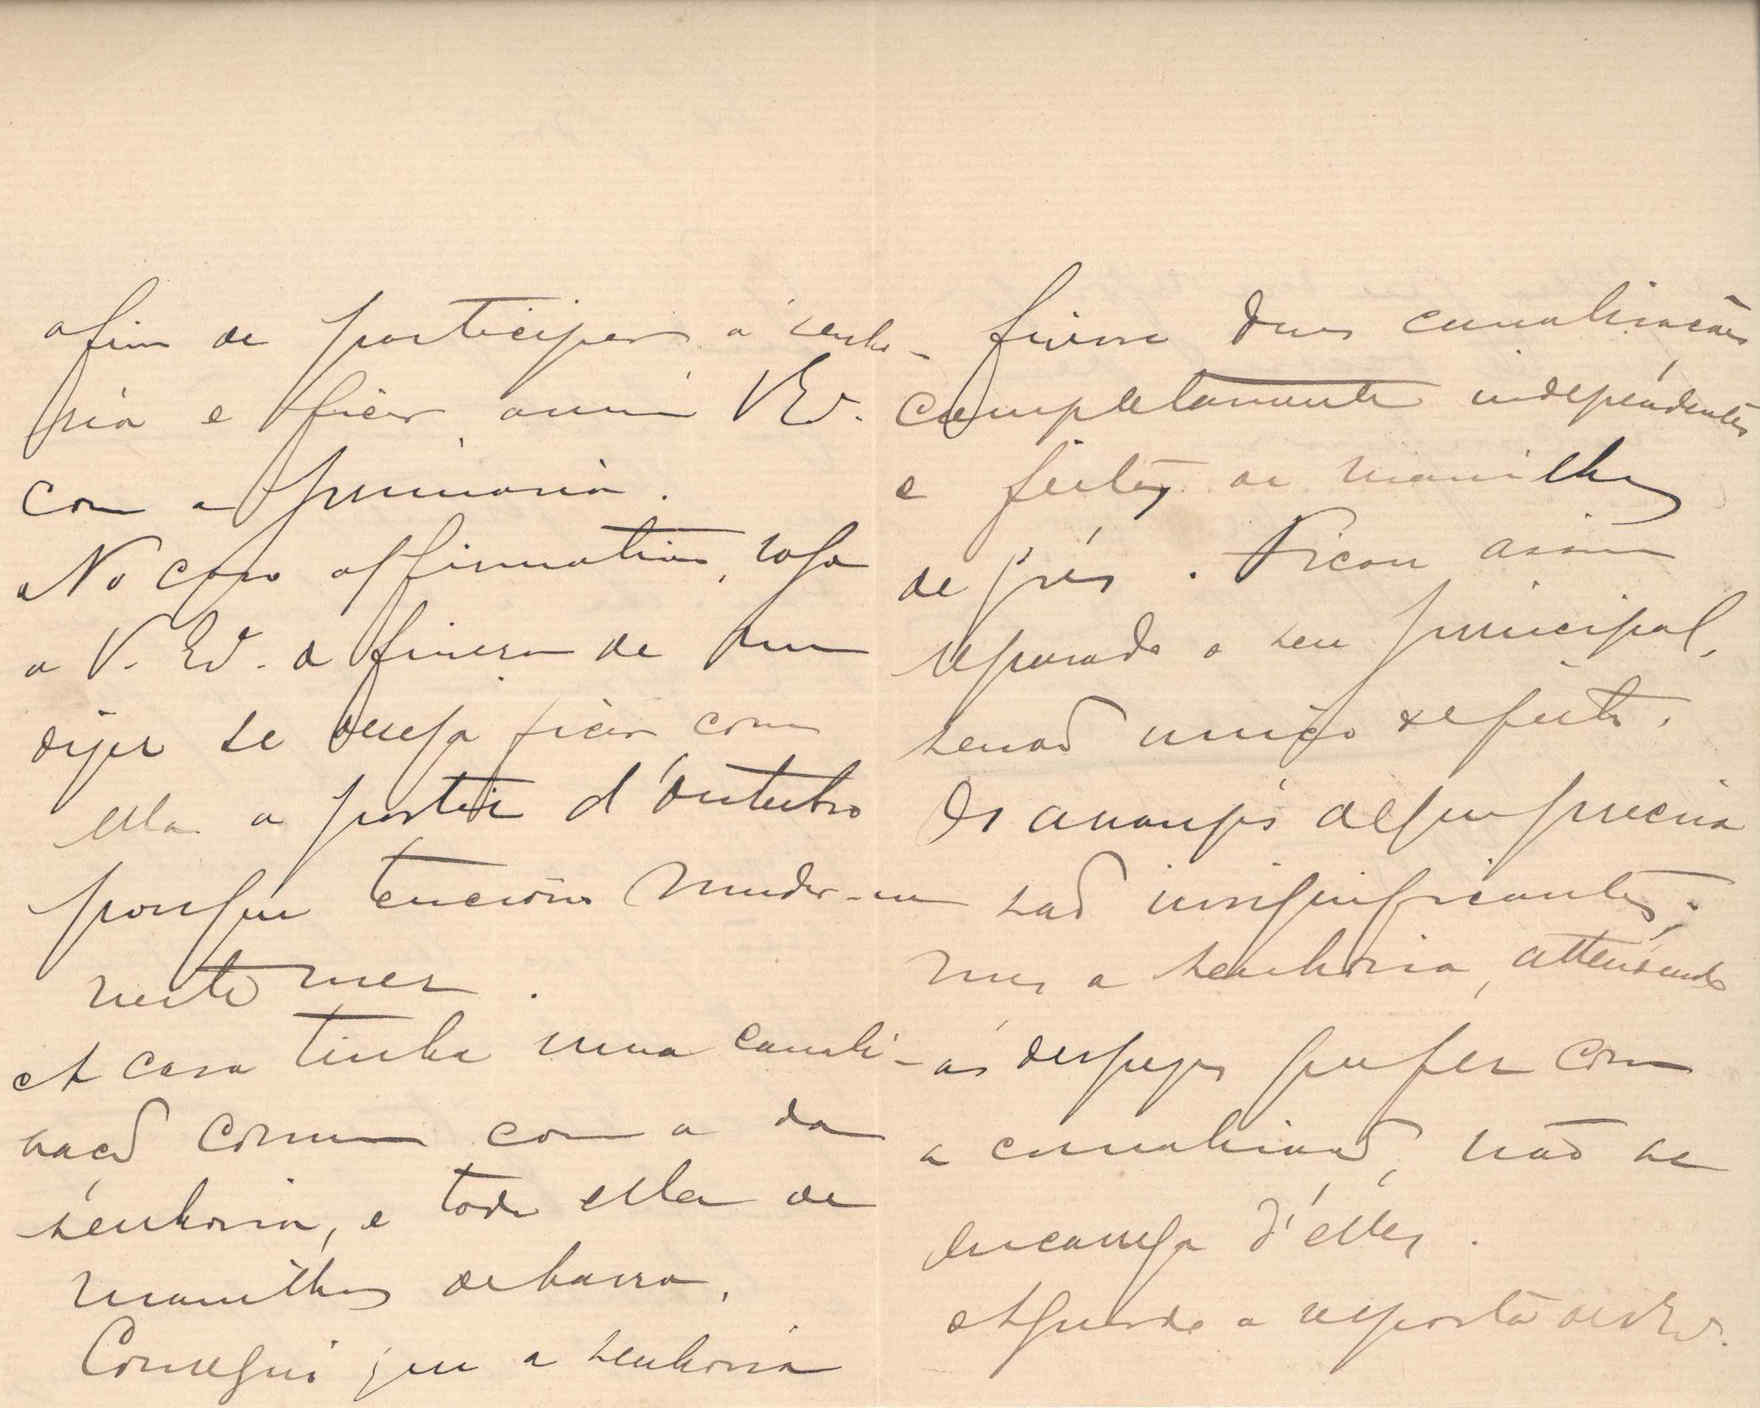 afim de participar á senho-
ria e ficar assim V Ex.
com a primasia.
No caso affirmativo, rogo
a V. Ex. a fineza de me
dizer se deseja ficar com
ella a partir d'Outubro
porque tenciono mudar-me
neste mez.
A casa tinha uma canali-
sação commum com a da
senhoria, e toda ella de
manilhas de barro.
Consegui que a senhoria
fizesse duas canalisações
completamente independentes
e feitas de manilhas
de grés. Ficou assim
separado o seu principal,
senão unico defeito.
Os arranjos de que precisa
são insignificantes,
mas a senhoria, attendendo
ás despezas que fez com
a canalisação, não se
encarrega d'elles.
Aguardo a resposta de V Ex.